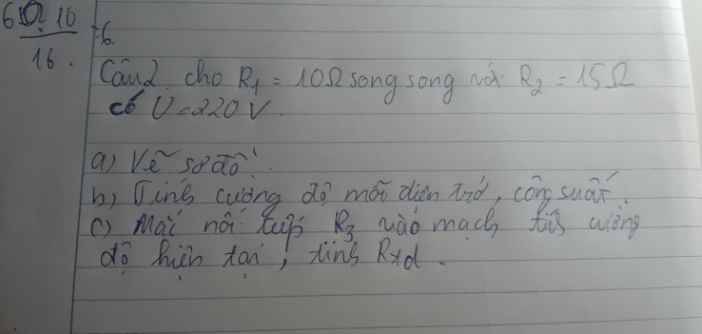 60.10
16.
= 6
Câu 2 cho R1 = 10Ω song song với R2 = 15Ω
có U = 220V.
a) Vẽ sơ đồ
b) Tính cường độ mỗi điện trở, công suất.
c) Mắc nối tiếp R3 vào mạch tính cường
độ hiện tại, tính Rtđ.